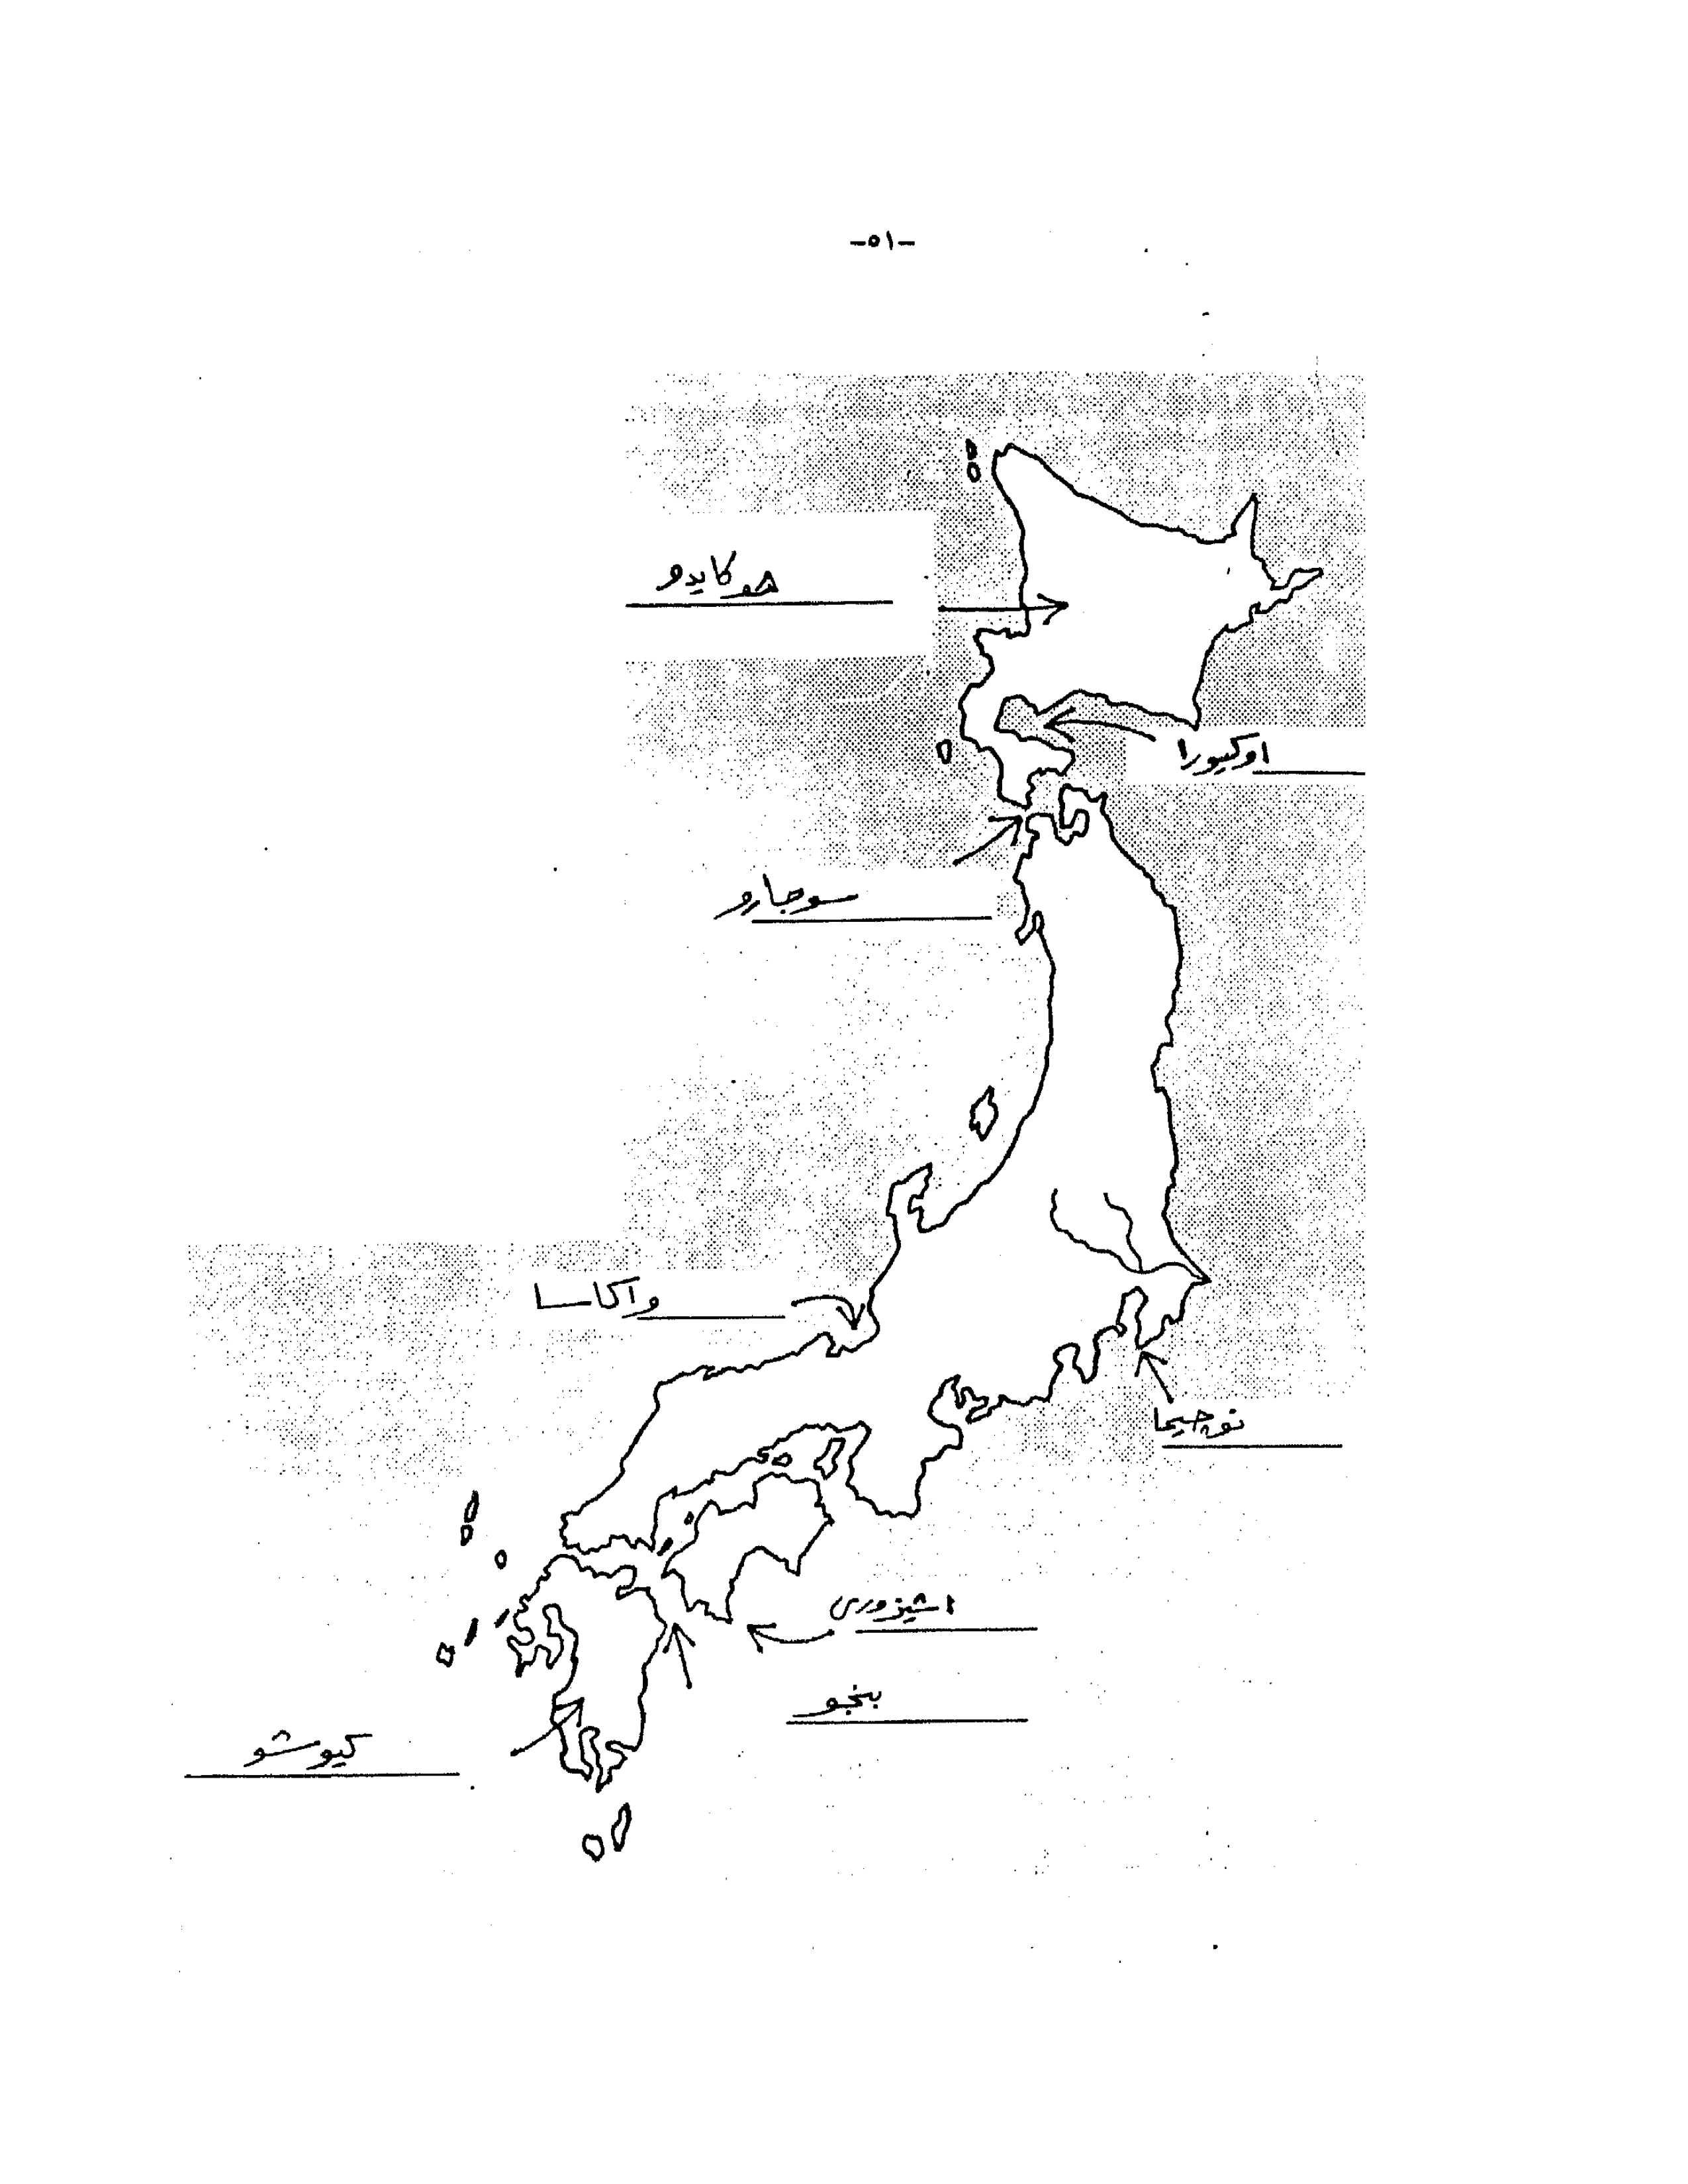 -٥١-
هوكايدو
اوكيورا
سوجارو
واكاسا
نوجيما
اشيزورى
بنجو
كيوشو